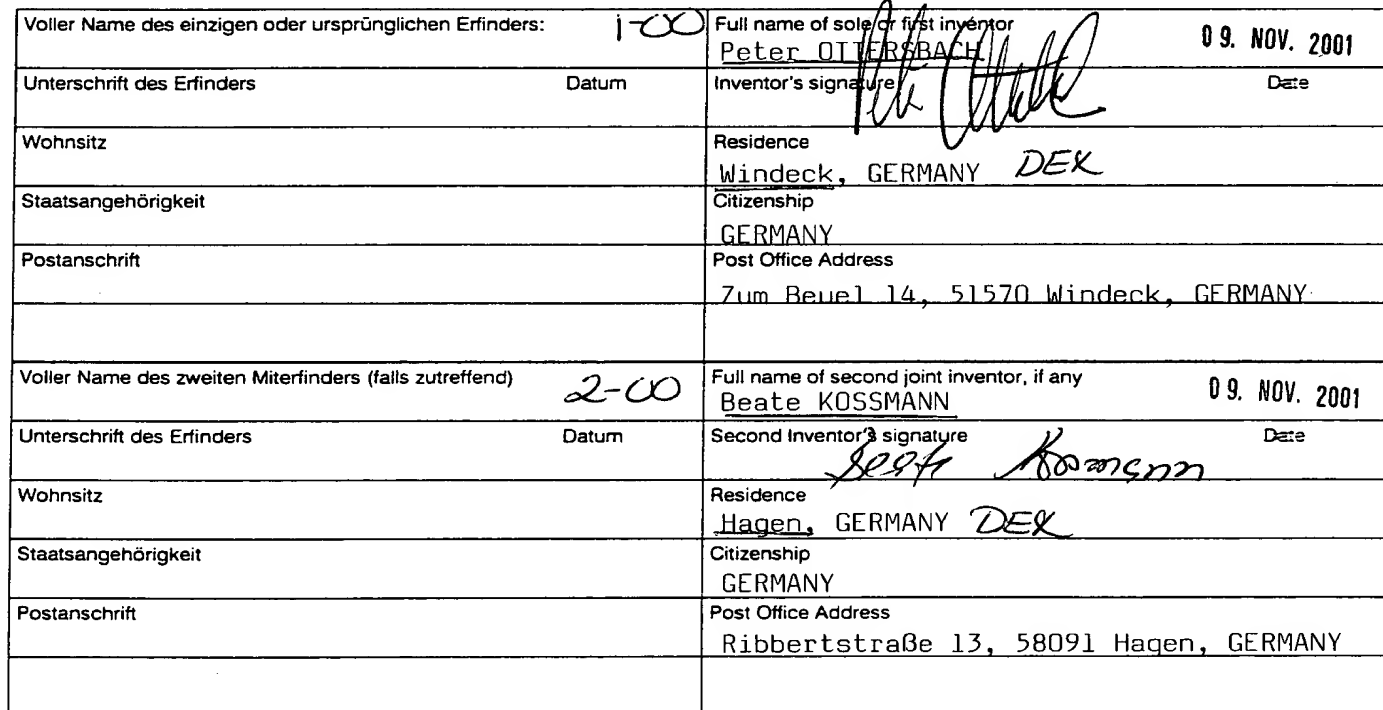 Voller Name des einzigen oder ursprünglichen Erfinders: 1-00 Full name of sole or first inventor
Peter OTTERSBACH 09. NOV. 2001
Unterschrift des Erfinders Datum Inventor's signature Date
Wohnsitz Residence
Windeck, GERMANY DEX
Staatsangehörigkeit Citizenship
GERMANY
Postanschrift Post Office Address
Zum Beuel 14, 51570 Windeck, GERMANY
Voller Name des zweiten Miterfinders (falls zutreffend) 2-00 Full name of second joint inventor, if any
Beate KOSSMANN 09. NOV. 2001
Unterschrift des Erfinders Datum Second Inventor's signature Date
Wohnsitz Residence
Hagen, GERMANY DEX
Staatsangehörigkeit Citizenship
GERMANY
Postanschrift Post Office Address
Ribbertstraße 13, 58091 Hagen, GERMANY